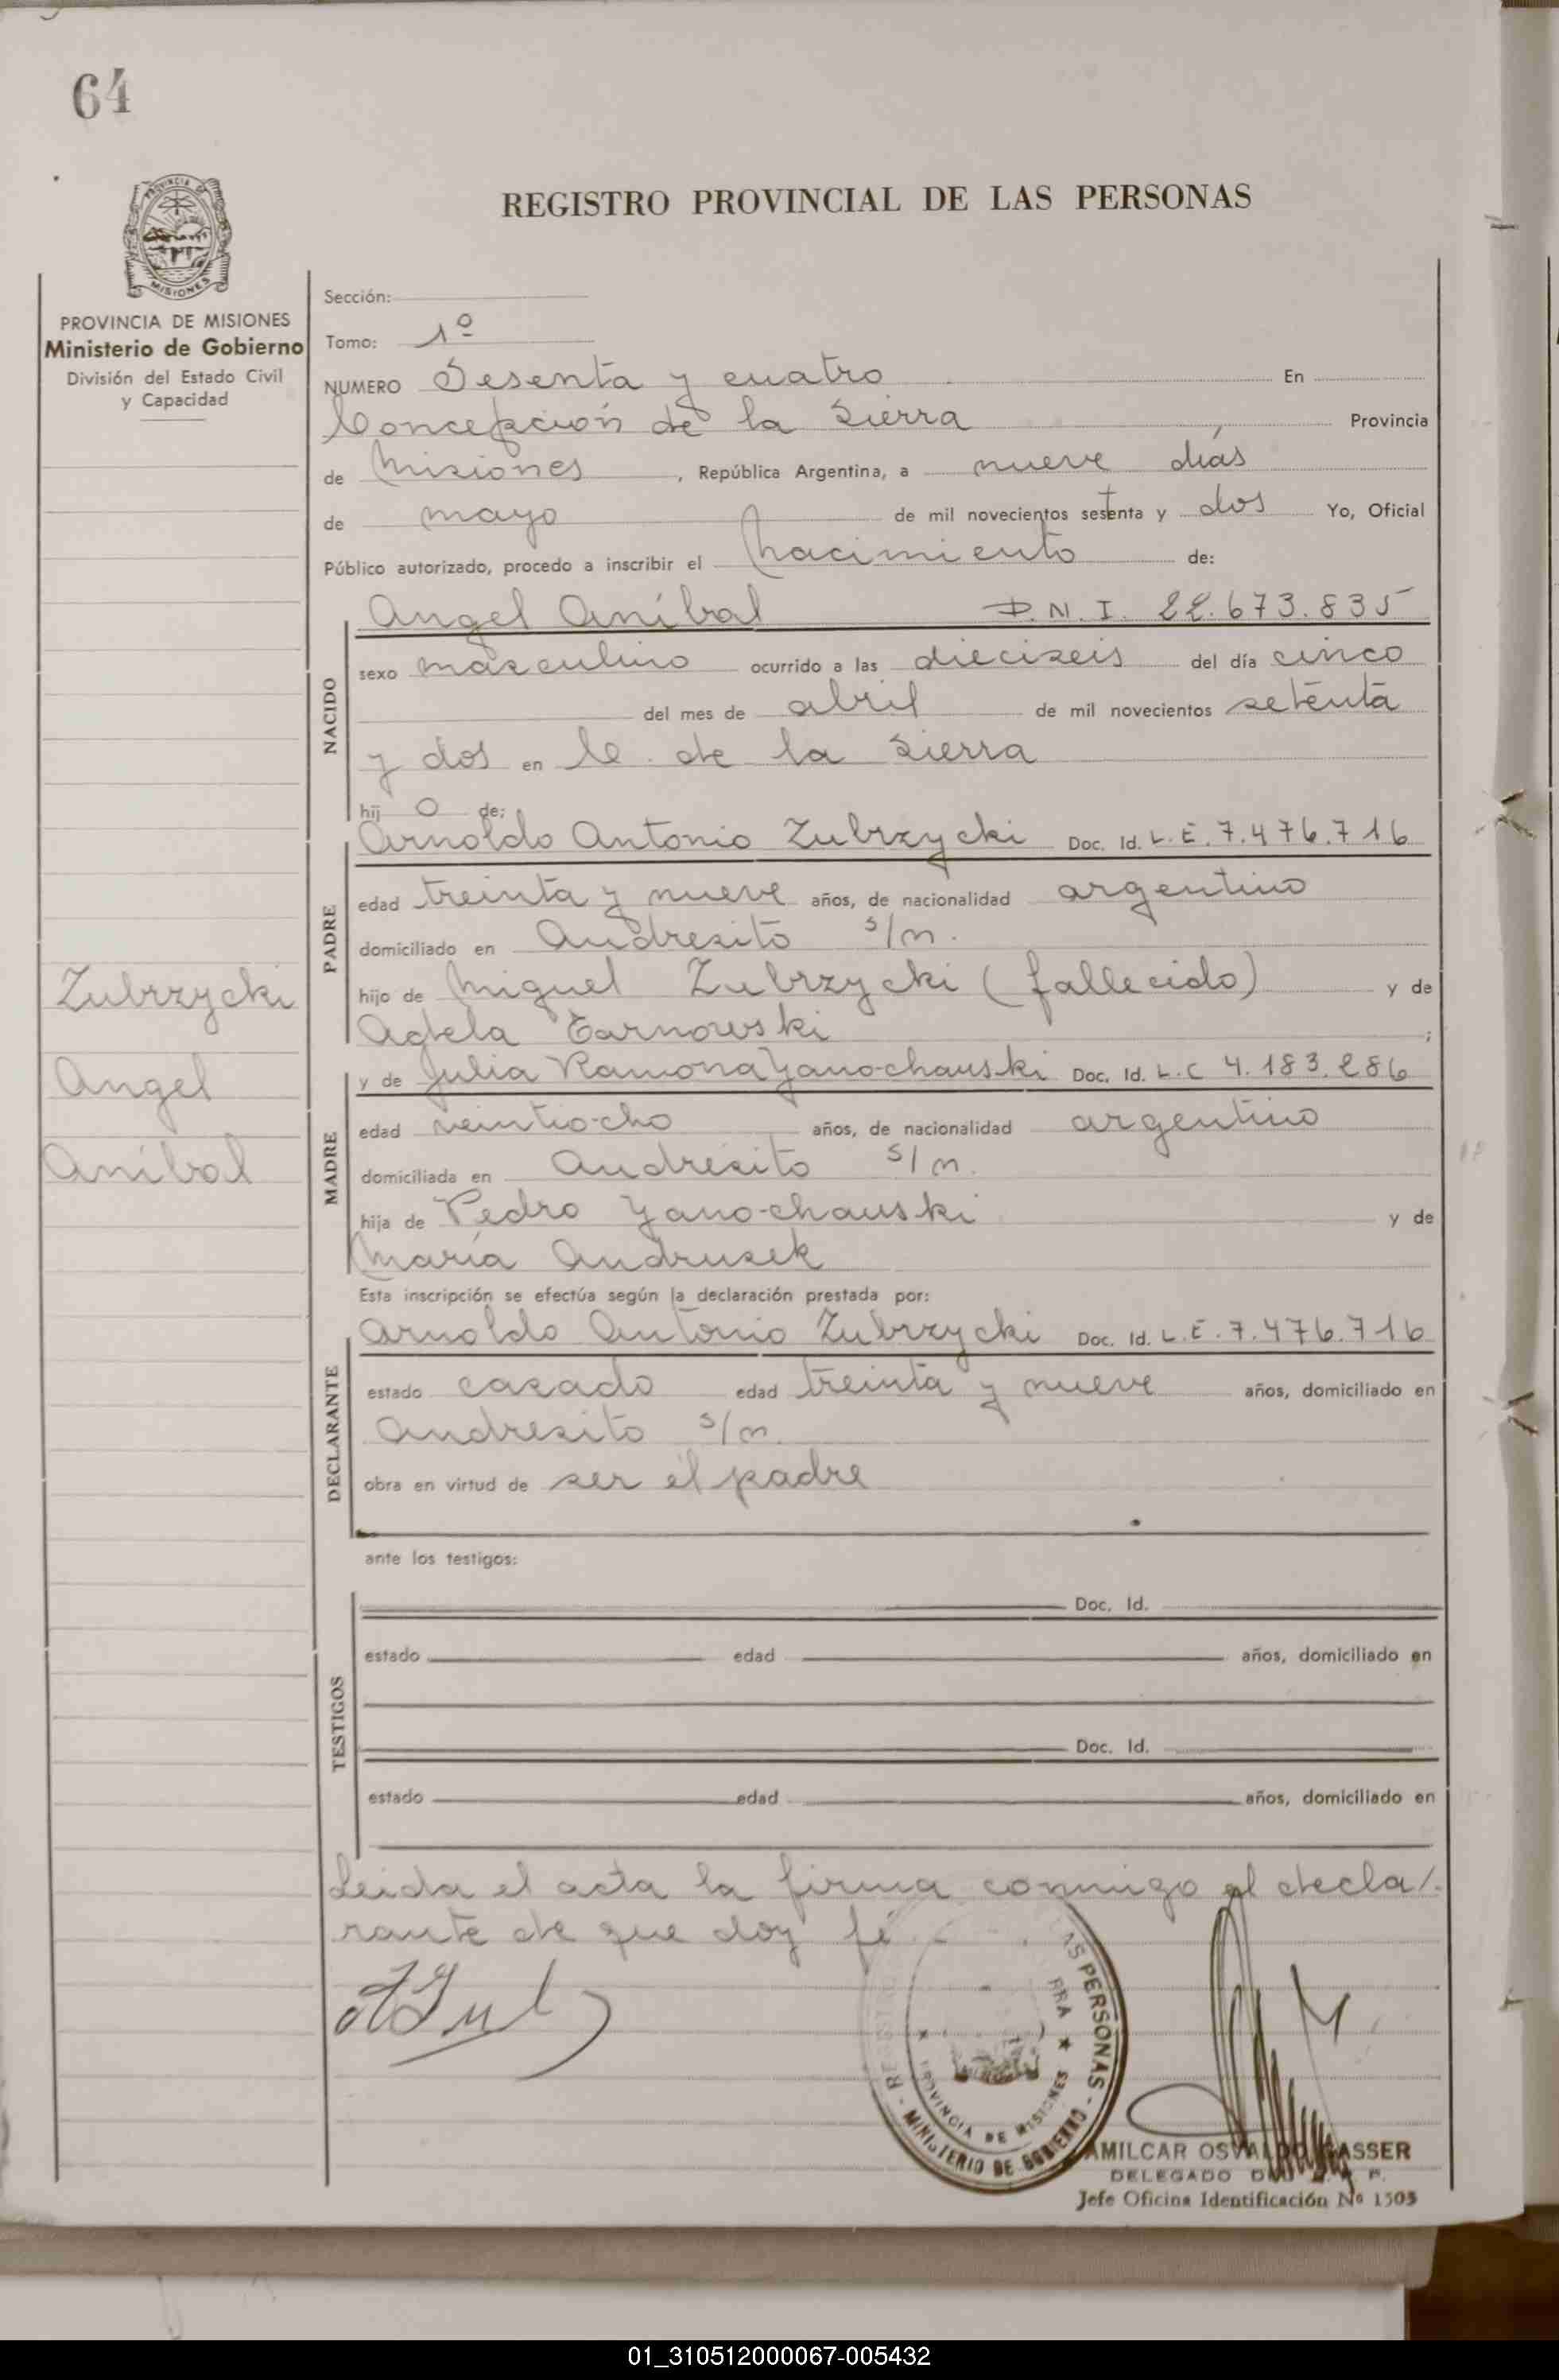 64
PROVINCIA DE
MISIONES
REGISTRO PROVINCIAL DE LAS PERSONAS
PROVINCIA DE MISIONES
Ministerio de Gobierno
División del Estado Civil
y Capacidad
Sección:
Tomo: 1º
NUMERO Sesenta y cuatro En
Concepción de la Sierra Provincia
de Misiones, República Argentina, a nueve días
de mayo de mil novecientos setenta y dos Yo, Oficial
Público autorizado, procedo a inscribir el nacimiento de:
NACIDO
Angel Aníbal D.N.I. 22.673.835
sexo masculino ocurrido a las dieciseis del día cinco
del mes de abril de mil novecientos setenta
y dos en C. de la Sierra
hij o de:
PADRE
Arnoldo Antonio Zubrzycki Doc. Id. L.E. 7.476.716
edad treinta y nueve años, de nacionalidad argentino
domiciliado en Andresito s/n.
hijo de Miguel Zubrzycki (fallecido) y de
Adela Tarnowski ;
Zubrzycki
Angel
Aníbal
MADRE
y de Julia Ramona Yanochauski Doc. Id. L.C 4.183.286
edad veintiocho años, de nacionalidad argentino
domiciliada en Andresito s/n.
hija de Pedro Yanochauski y de
María Andrusek
Esta inscripción se efectúa según la declaración prestada por:
DECLARANTE
Arnoldo Antonio Zubrzycki Doc. Id. L.E. 7.476.716
estado casado edad treinta y nueve años, domiciliado en
Andresito s/n.
obra en virtud de ser el padre
ante los testigos:
TESTIGOS
Doc. Id.
estado edad años, domiciliado en
Doc. Id.
estado edad años, domiciliado en
Leida el acta la firma conmigo el decla/.
rante de que doy fé
LAS PERSONAS - MINISTERIO DE GOBIERNO -
PROVINCIA DE MISIONES
AMILCAR OSVALDO GASSER
DELEGADO
Jefe Oficina Identificación Nº 1503
01_310512000067-005432